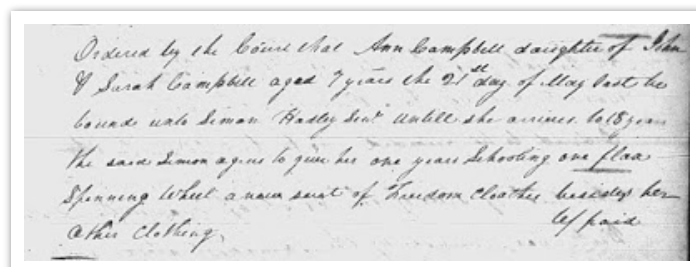 Ordered by the Court that Ann Campbell daughter of John
& Sarah Campbell aged 7 years the 21st day of May last be
bound unto Simon Hasley Senr untill she arives to 18 years
the said Simon agrees to give her one years Schooling one flax
Spinning Wheel a new suit of Freedom Cloathes besides her
other Clothing
paid